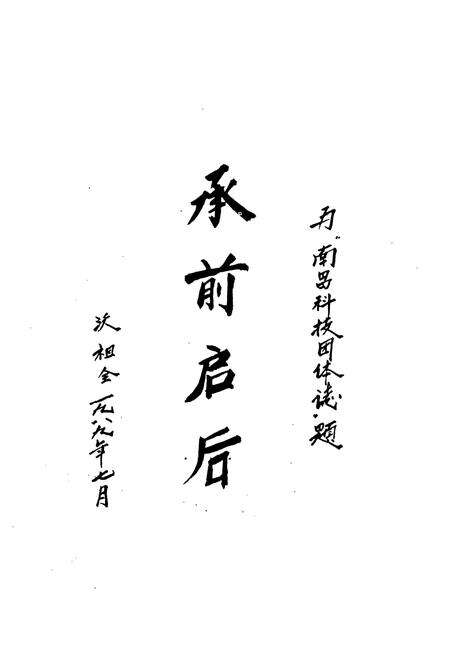 为“南昌科技团体志”题
承前启后
沃祖全 一九八九年七月